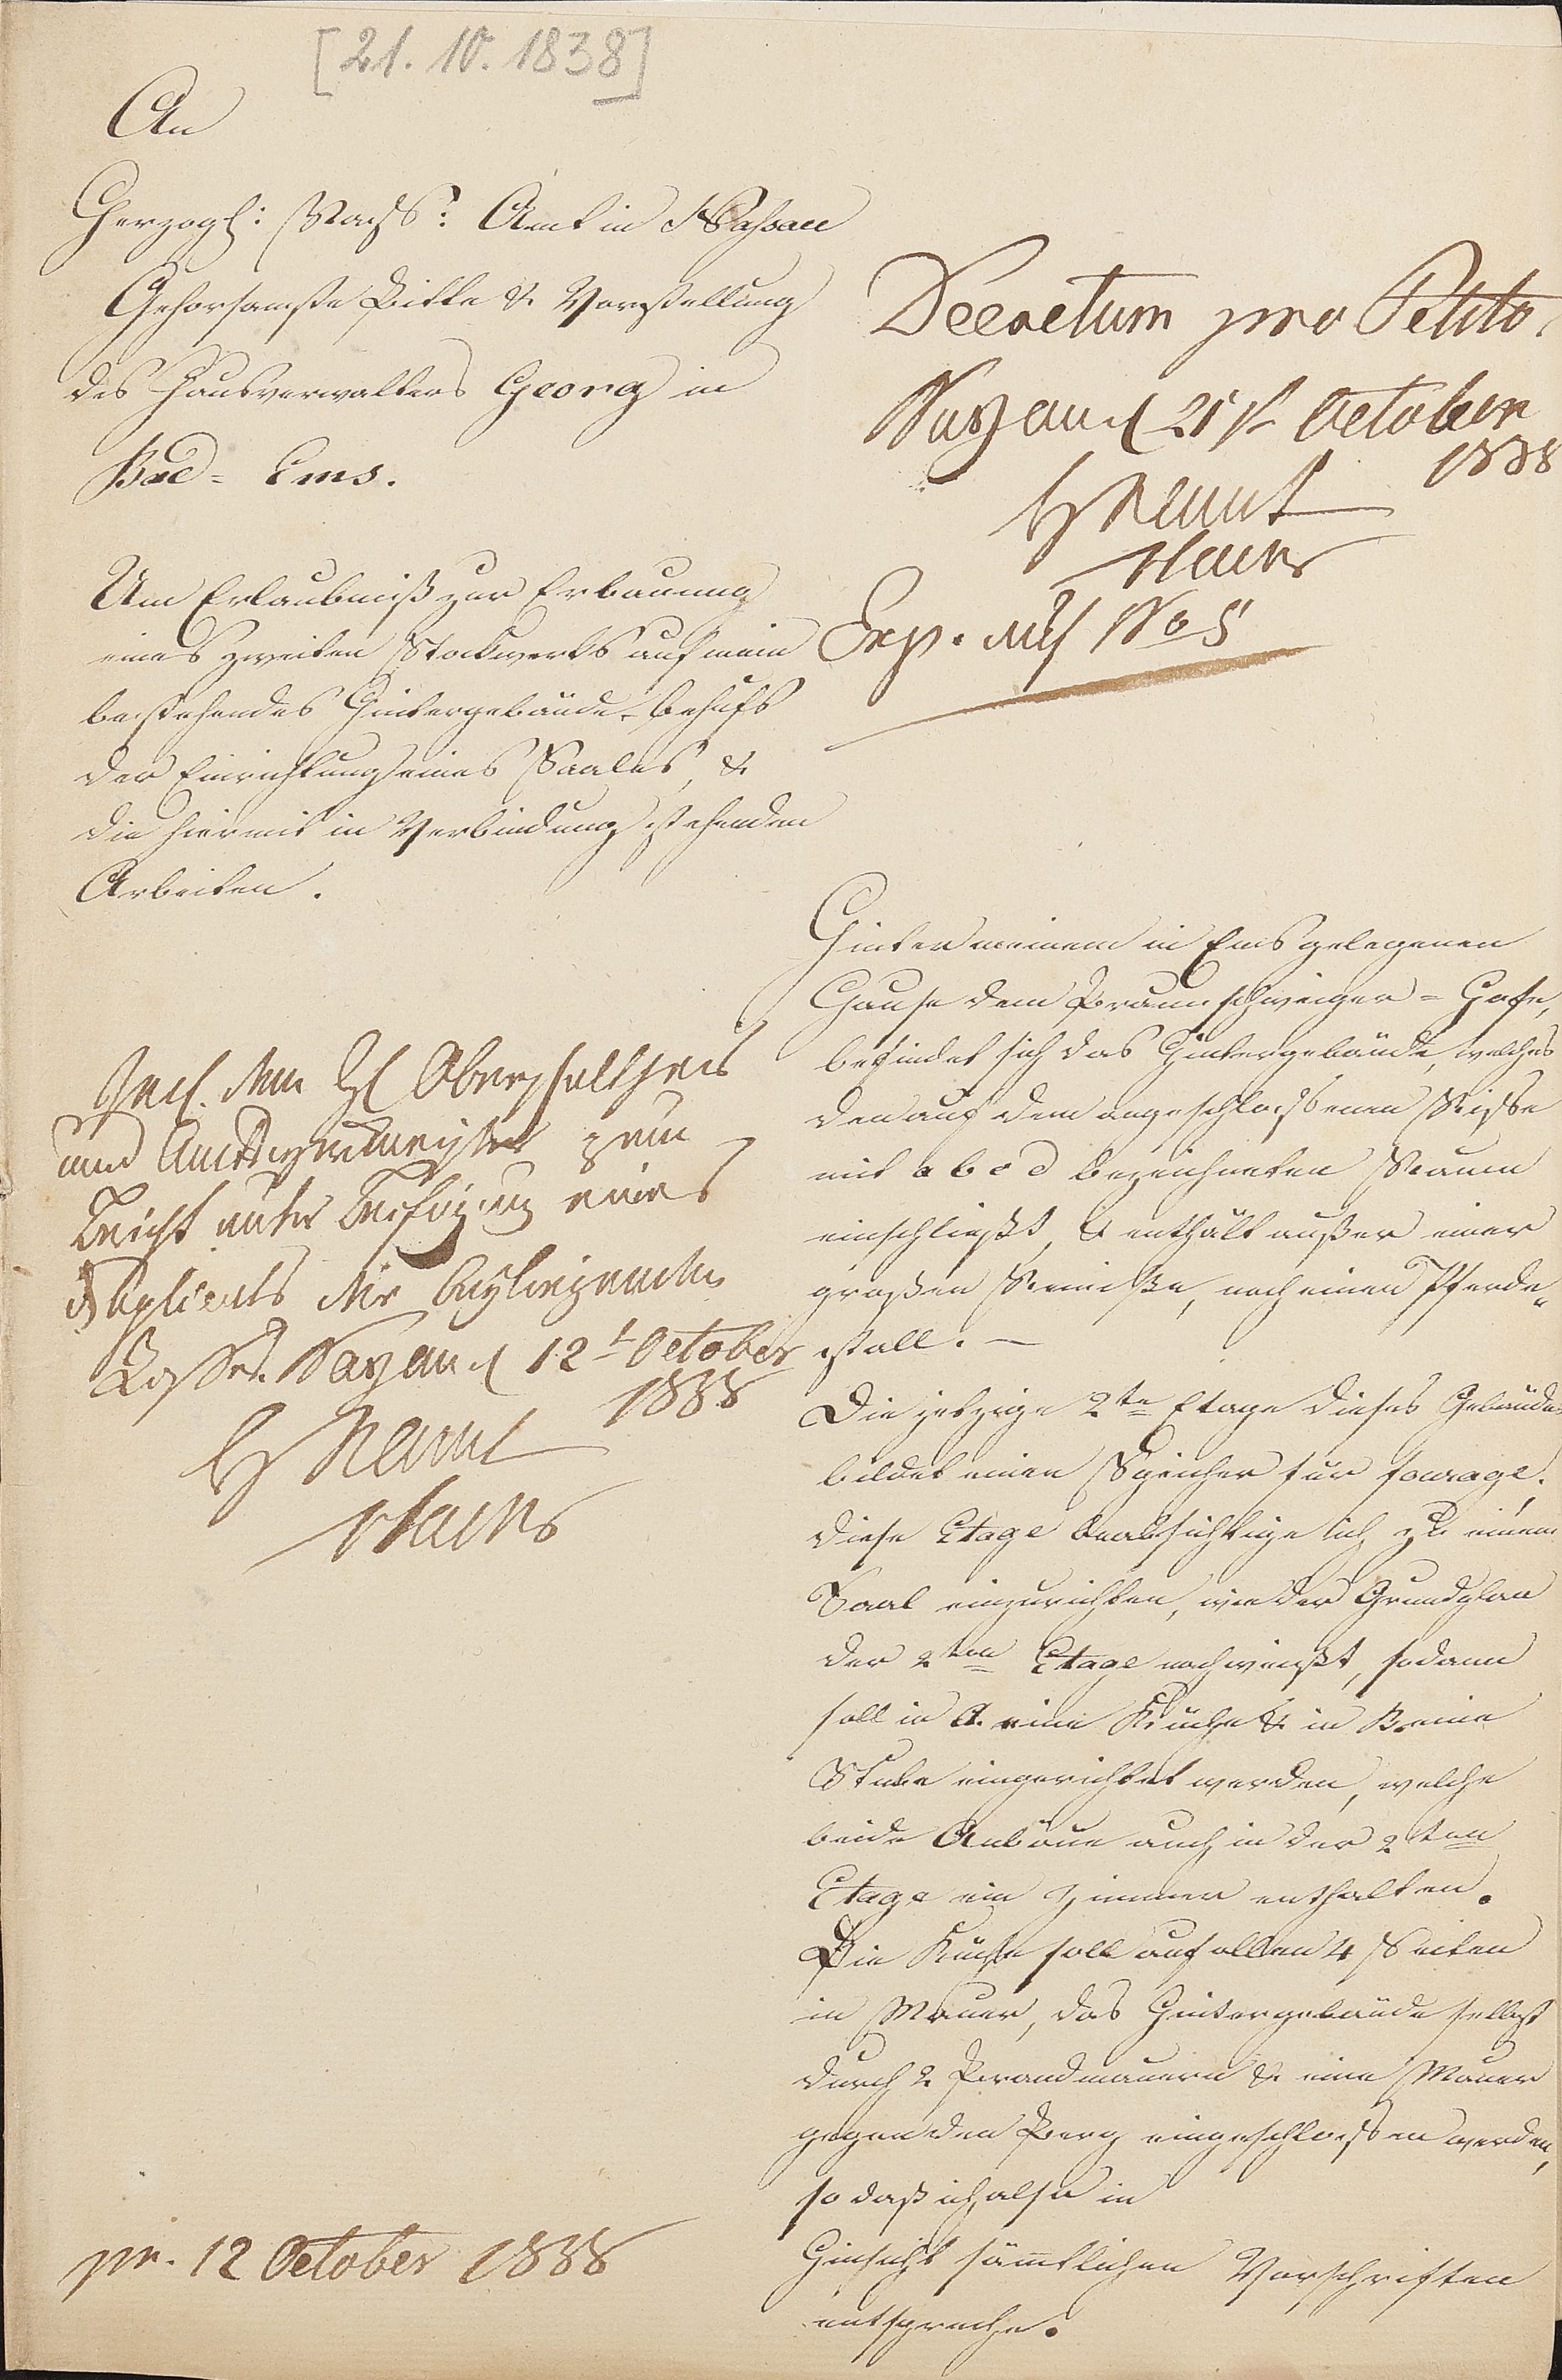 [21. 10. 1838]
An
Herzogl: Nass: Amt in Nassau
Gehorsamste Bitte & Vorstellung
des Hausverwalters Georg in
Bad-Ems.
Um Erlaubniß zur Erbauung
eines zweiten Stockwerks auf mein
bestehendes Hintergebäude, behufs
der Einrichtung eines Saales, &
die hiermit in Verbindung stehenden
Arbeiten.
Decretum pro Petito.
Nassau d 21st October
1838
H N Amt
Exp. auf No 5
dem H Oberschultheis
und Amts zum
Bericht unter Beifügung eines
Duplicats der beyliegenden
Risse. Nassau d 12t October
1838
H N Amt
pr. 12 October 1838
Hinter meinem in Ems gelegenen
Hause dem Braunschweiger-Hofe,
befindet sich das Hintergebäude, welches
den auf dem angeschlossenen Risse
mit a b c d bezeichneten Raum
einschließt, & enthält außer einer
großen Remisse, noch einen Pferde„
stall. —
Die jetzige 2te Etage dieses Gebäudes
bildet einen Speicher für fourage.
diese Etage beabsichtige ich zu einem
Saal einzurichten, wie der Grundplan
der 2ten Etage nachweißt, sodann
soll in A. eine Küche & in B. eine
Stube eingerichtet werden, welche
beide Anbäue auch in der 2ten
Etage ein Zimmer enthalten.
Die Küche soll auf allen 4 Seiten
in Mauer, das Hintergebäude selbst
durch 2 Brandmauern & eine Mauer
gegen den Berg eingeschlossen werden,
so daß ich also in
Hinsicht sämtlichen Vorschriften
entspreche.